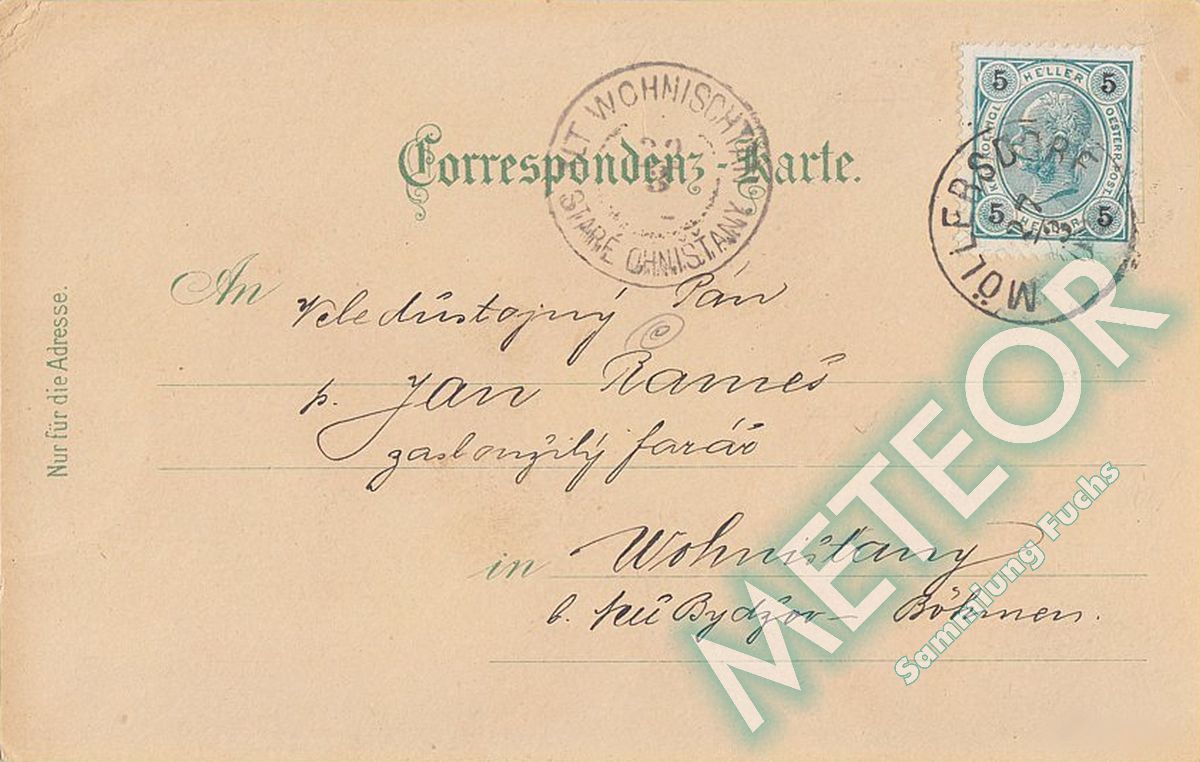 ALT WOHNISCHTAN
STARÉ OHNIŠŤANY
5 HELLER 5
5 HELLER 5
MÖLLERSDORF
Correspondenz-Karte.
An Veledůstojný Pán
p. Jan Rameš
zasloužilý farář
in Wohništany
b. Neu Bydžov – Böhmen.
Nur für die Adresse.
METEOR
Sammlung Fuchs